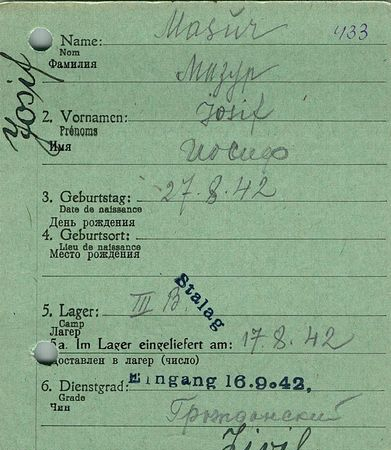 433
Name: Masur
Nom
Фамилия
Мазур
Yosif
2. Vornamen: Josif
Prénoms
Имя
Иосиф
3. Geburtstag: 27.8.42
Date de naissance
День рождения
4. Geburtsort:
Lieu de naissance
Место рождения
5. Lager: III B.
Stalag
Camp
Лагерь
5a. Im Lager eingeliefert am: 17.8.42
Доставлен в лагерь (число)
6. Dienstgrad: Eingang 16.9.42.
Grade
Чин
Гражданский
Zivil